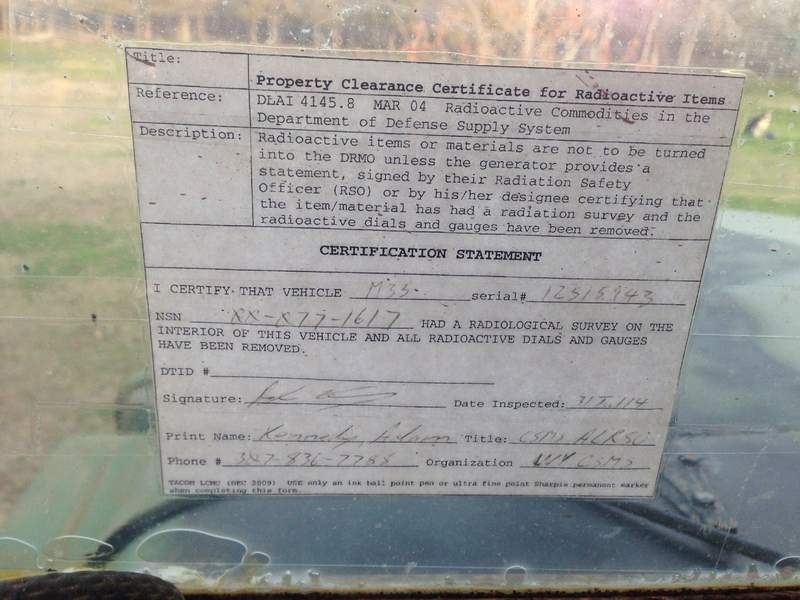 Title:
Property Clearance Certificate for Radioactive Items
Reference:
DLAI 4145.8 MAR 04 Radioactive Commodities in the
Department of Defense Supply System
Description:
Radioactive items or materials are not to be turned
into the DRMO unless the generator provides a
statement, signed by their Radiation Safety
Officer (RSO) or by his/her designee certifying that
the item/material has had a radiation survey and the
radioactive dials and gauges have been removed.
CERTIFICATION STATEMENT
I CERTIFY THAT VEHICLE M35 serial# 12515943
NSN XX-X77-1617 HAD A RADIOLOGICAL SURVEY ON THE
INTERIOR OF THIS VEHICLE AND ALL RADIOACTIVE DIALS AND GAUGES
HAVE BEEN REMOVED.
DTID #
Signature: Date Inspected:
Print Name: Kennedy, Adam Title: CSMS ALRSO
Phone # 347-836-7788 Organization WV CSMS
TACOM LCMC (DEC 2009) USE only an ink ball point pen or ultra fine point Sharpie permanent marker
when completing this form.